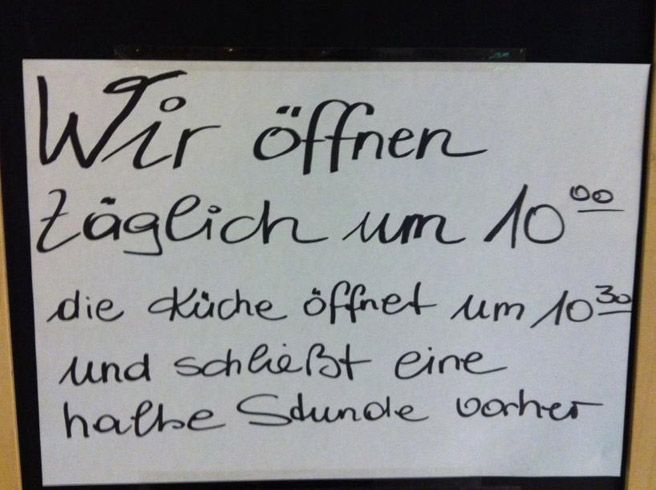 Wir öffnen
täglich um 10⁰⁰
die Küche öffnet um 10³⁰
und schließt eine
halbe Stunde vorher